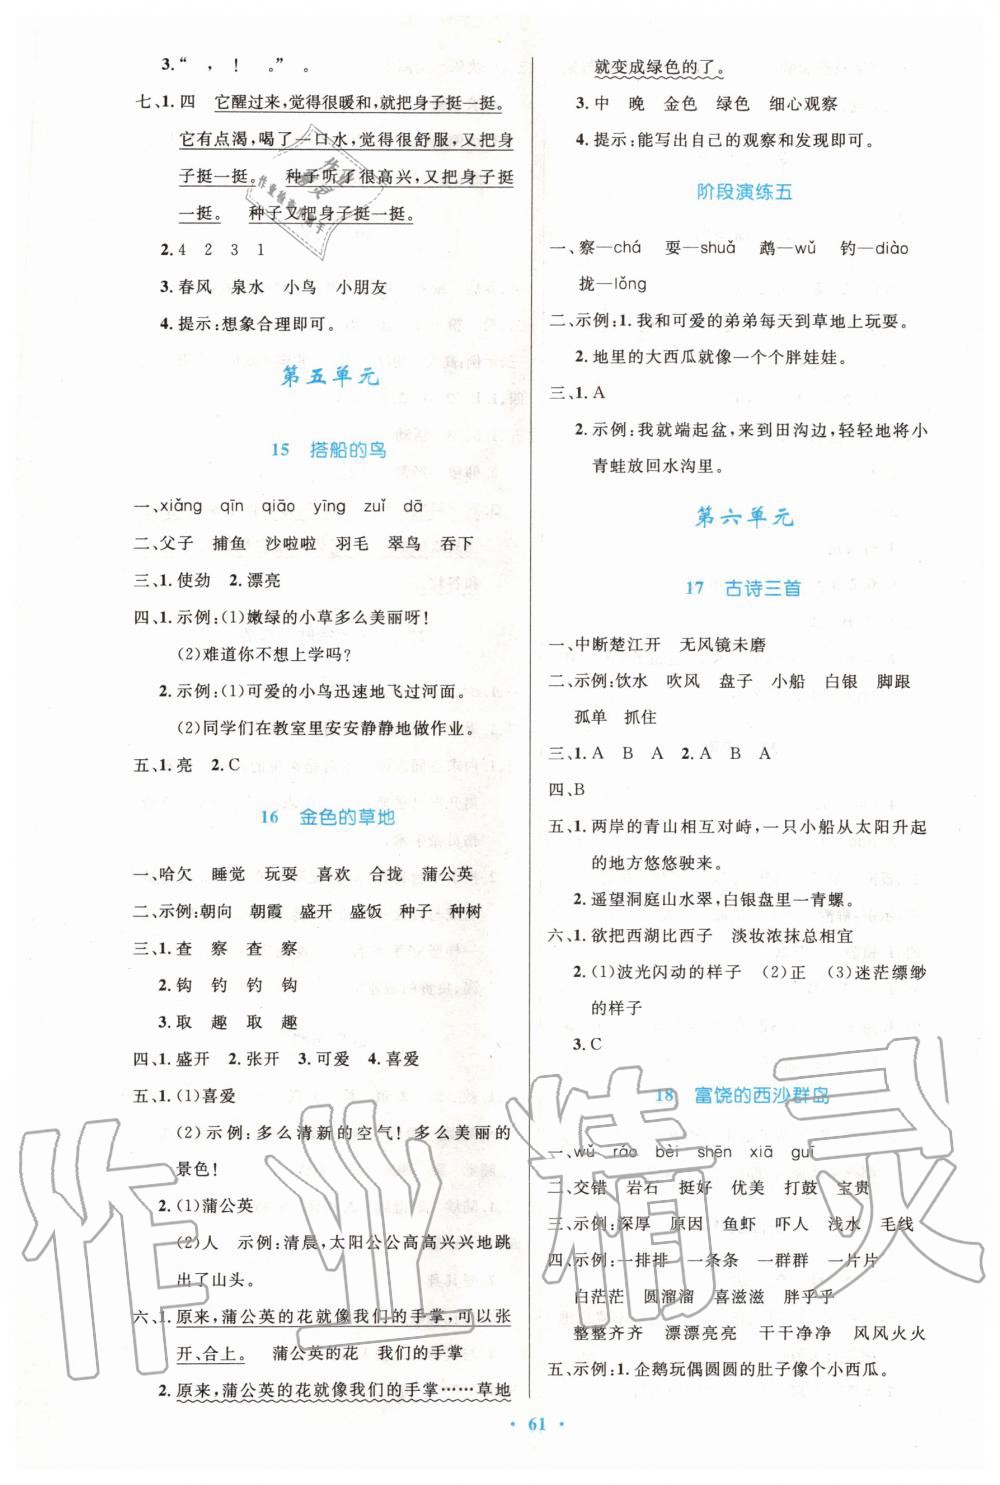 3.“　，！　。”　。
七、1.四　它醒过来,觉得很暖和,就把身子挺一挺。
它有点渴,喝了一口水,觉得很舒服,又把身
子挺一挺。　种子听了很高兴,又把身子挺
一挺。　种子又把身子挺一挺。
2.4　2　3　1
3.春风　泉水　小鸟　小朋友
4.提示:想象合理即可。
第五单元
15　搭船的鸟
一、xiǎng　qīn　qiāo　yīng　zuǐ　dā
二、父子　捕鱼　沙啦啦　羽毛　翠鸟　吞下
三、1.使劲　2.漂亮
四、1.示例:(1)嫩绿的小草多么美丽呀!
(2)难道你不想上学吗?
2.示例:(1)可爱的小鸟迅速地飞过河面。
(2)同学们在教室里安安静静地做作业。
五、1.亮　2.C
16　金色的草地
一、哈欠　睡觉　玩耍　喜欢　合拢　蒲公英
二、示例:朝向　朝霞　盛开　盛饭　种子　种树
三、1.查　察　查　察
2.钩　钓　钓　钩
3.取　趣　取　趣
四、1.盛开　2.张开　3.可爱　4.喜爱
五、1.(1)喜爱
(2)示例:多么清新的空气! 多么美丽的
景色!
2.(1)蒲公英
(2)人　示例:清晨,太阳公公高高兴兴地跳
出了山头。
六、1.原来,蒲公英的花就像我们的手掌,可以张
开、合上。　蒲公英的花　我们的手掌
2.原来,蒲公英的花就像我们的手掌……草地
就变成绿色的了。
3.中　晚　金色　绿色　细心观察
4.提示:能写出自己的观察和发现即可。
阶段演练五
一、察—chá　耍—shuǎ　鹉—wǔ　钓—diào
拢—lǒng
二、示例:1.我和可爱的弟弟每天到草地上玩耍。
2.地里的大西瓜就像一个个胖娃娃。
三、1.A
2.示例:我就端起盆,来到田沟边,轻轻地将小
青蛙放回水沟里。
第六单元
17　古诗三首
一、中断楚江开　无风镜未磨
二、示例:饮水　吹风　盘子　小船　白银　脚跟
孤单　抓住
三、1.A　B　A　2.A　B　A
四、B
五、1.两岸的青山相互对峙,一只小船从太阳升起
的地方悠悠驶来。
2.遥望洞庭山水翠,白银盘里一青螺。
六、1.欲把西湖比西子　淡妆浓抹总相宜
2.(1)波光闪动的样子　(2)正　(3)迷茫缥缈
的样子
3.C
18　富饶的西沙群岛
一、wǔ　ráo　bèi　shēn　xiā　guī
二、交错　岩石　挺好　优美　打鼓　宝贵
三、示例:深厚　原因　鱼虾　吓人　浅水　毛线
四、示例:一排排　一条条　一群群　一片片
白茫茫　圆溜溜　喜滋滋　胖乎乎
整整齐齐　漂漂亮亮　干干净净　风风火火
五、示例:1.企鹅玩偶圆圆的肚子像个小西瓜。
· 61 ·
作业精灵